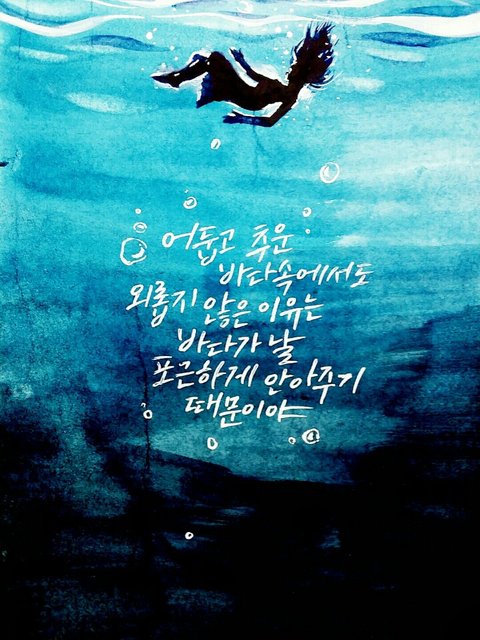 어둡고 추운
바다속에서도
외롭지 않은 이유는
바다가 날
포근하게 안아주기
때문이야